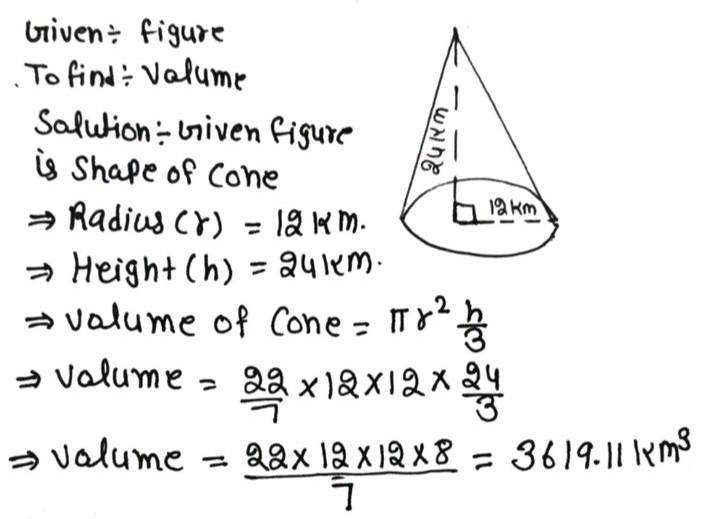 Given÷ figure
. To find÷ Volume
Solution÷ Given figure
is shape of cone
⇒ Radius (r) = 12 km.
⇒ Height (h) = 24 km.
⇒ Volume of Cone = πr² h/3
⇒ Volume = 22/7 × 12 × 12 × 24/3
⇒ Volume = 22 × 12 × 12 × 8 / 7 = 3619.11 km³
24 km
12 km